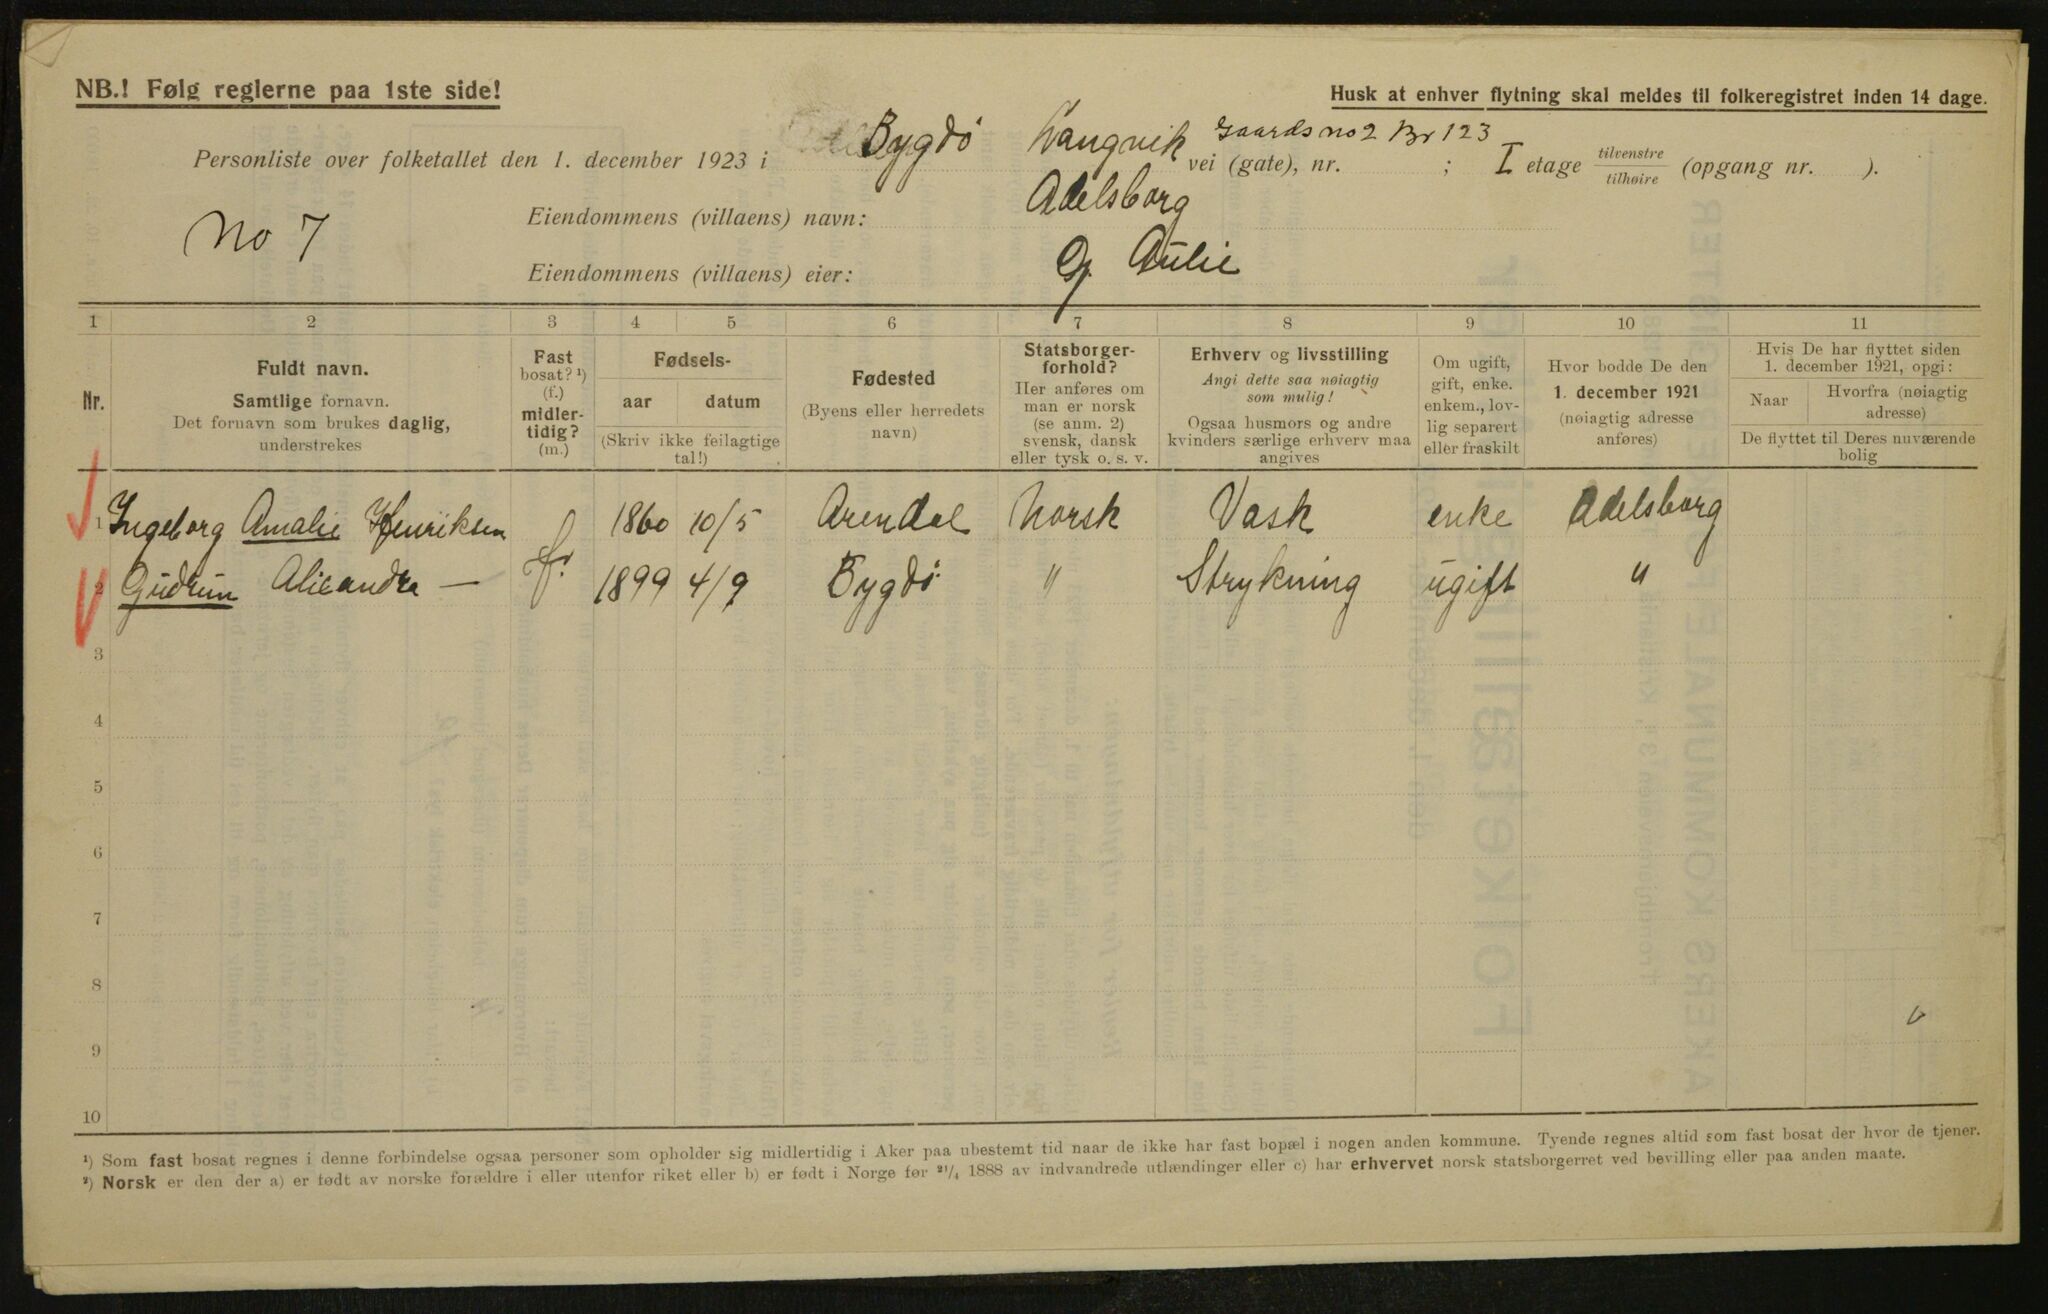 NB.! Følg reglerne paa 1ste side!
Husk at enhver flytning skal meldes til folkeregistret inden 14 dage.
Personliste over folketallet den 1. december 1923 i Bygdö Langvik vei (gate), nr. Gaards no 2 Br 123 ; I etage tilvenstre tilhøire (opgang nr. ).
No 7
Eiendommens (villaens) navn: Adelsborg
Eiendommens (villaens) eier: G. Aulie
1 2 3 4 5 6 7 8 9 10 11
Nr.
Fuldt navn.
Samtlige fornavn.
Det fornavn som brukes daglig,
understrekes
Fast
bosat? ¹)
(f.)
midler-
tidig?
(m.)
Fødsels-
aar datum
(Skriv ikke feilagtige
tal!)
Fødested
(Byens eller herredets
navn)
Statsborger-
forhold?
Her anføres om
man er norsk
(se anm. 2)
svensk, dansk
eller tysk o. s. v.
Erhverv og livsstilling
Angi dette saa nøiagtig
som mulig!
Ogsaa husmors og andre
kvinders særlige erhverv maa
angives
Om ugift,
gift, enke.
enkem., lov-
lig separert
eller fraskilt
Hvor bodde De den
1. december 1921
(nøiagtig adresse
anføres)
Hvis De har flyttet siden
1. december 1921, opgi:
Naar
Hvorfra (nøiagtig
adresse)
De flyttet til Deres nuværende
bolig
1 Ingeborg Amalie Henriksen f. 1860 10/5 Arendal Norsk Vask enke Adelsborg
2 Gudrun Alexandra — 1899 4/9 Bygdö " Strykning ugift "
3
4
5
6
7
8
9
10
¹) Som fast bosat regnes i denne forbindelse ogsaa personer som opholder sig midlertidig i Aker paa ubestemt tid naar de ikke har fast bopæl i nogen anden kommune. Tyende regnes altid som fast bosat der hvor de tjener.
²) Norsk er den der a) er født av norske forældre i eller utenfor riket eller b) er født i Norge før ²¹/₄ 1888 av indvandrede utlændinger eller c) har erhvervet norsk statsborgerret ved bevilling eller paa anden maate.